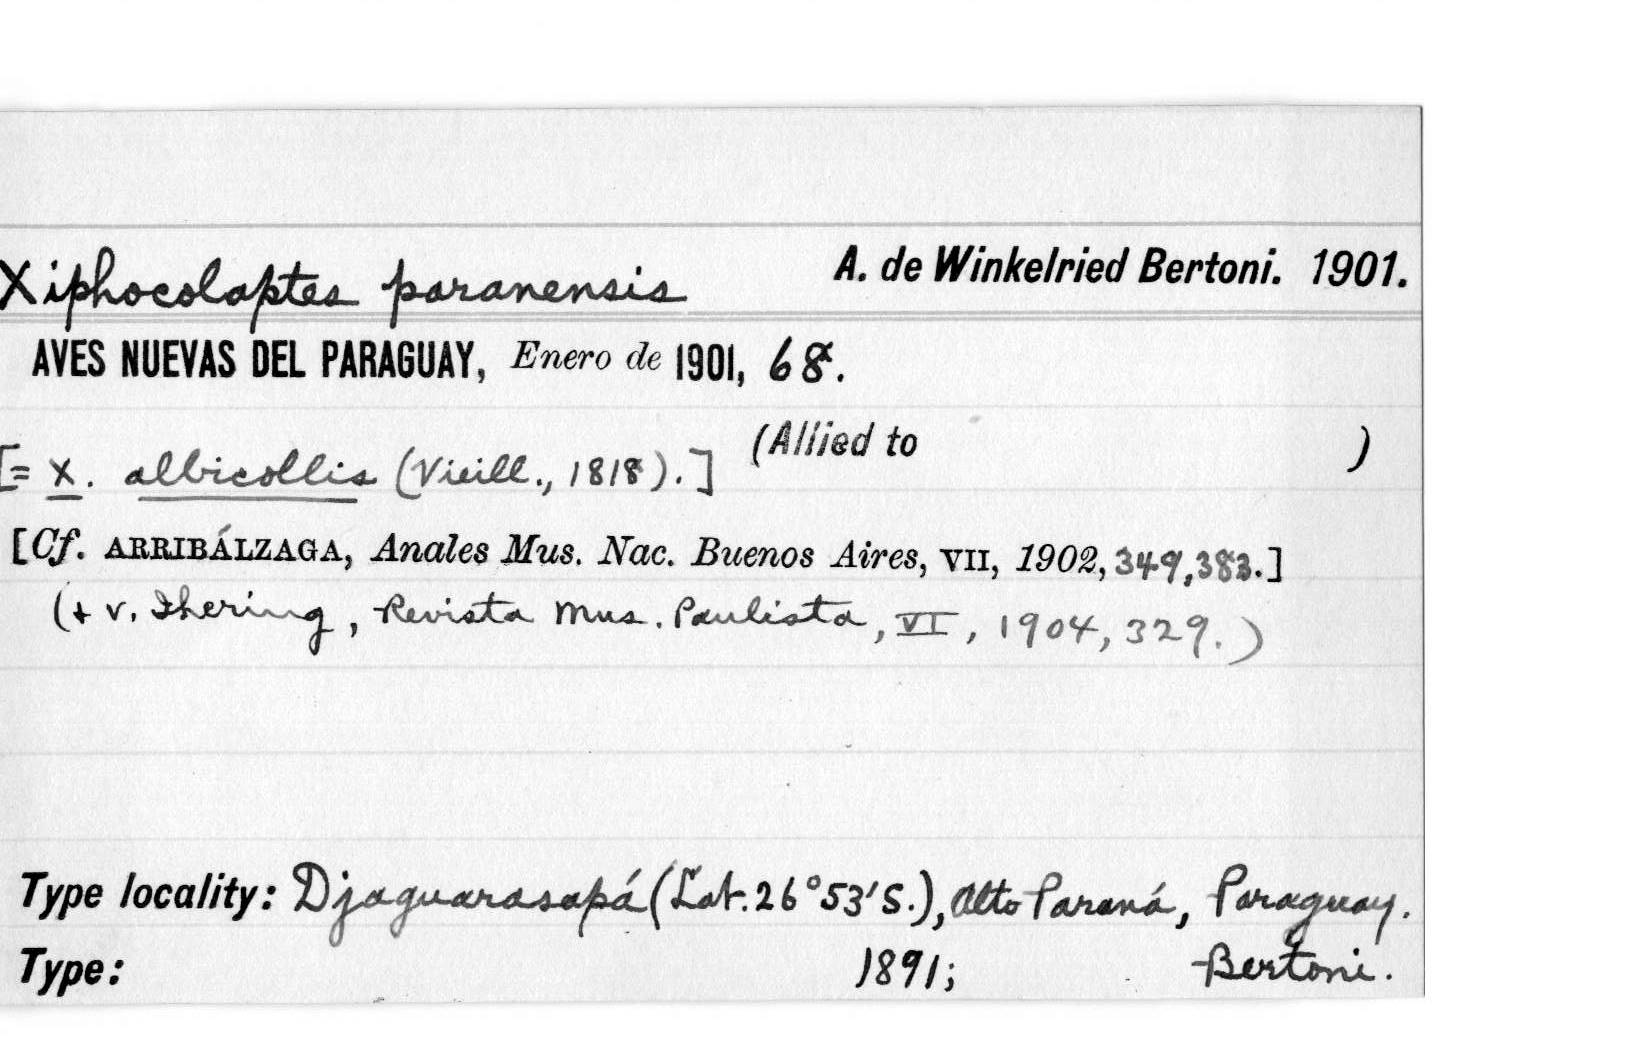 Xiphocolaptes paranensis A. de Winkelried Bertoni. 1901.
AVES NUEVAS DEL PARAGUAY, Enero de 1901, 68.
(Allied to )
[= X. albicollis (Vieill., 1818).]
[Cf. ARRIBÁLZAGA, Anales Mus. Nac. Buenos Aires, VII, 1902, 349, 383.]
(+ v. Ihering, Revista Mus. Paulista, VI, 1904, 329.)
Type locality: Djaguarasapá (Lat. 26°53'S.), Alto Paraná, Paraguay.
Type: 1891; Bertoni.